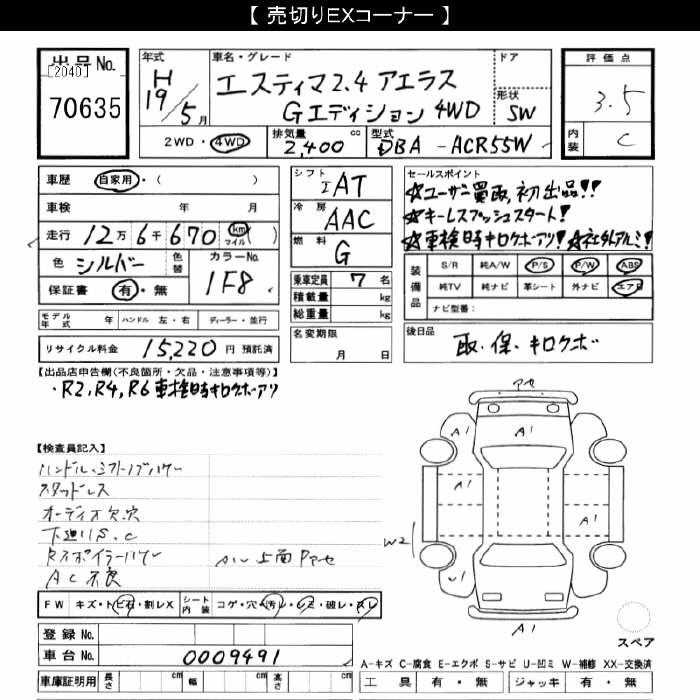 【 売切りEXコーナー 】
出品No.
[2040]
70635
年式
H
19/5月
車名・グレード
エスティマ2.4 アエラス
Gエディション 4WD
ドア
形状
SW
評価点
3.5
内装
C
2WD・4WD
排気量
2,400 cc
型式
DBA - ACR55W
車歴
自家用・( )
車検 年 月
走行 12万 6千 670 km マイル ( )
色 シルバー 色替
カラーNo.
1F8
保証書 有・無
モデル年式 年 ハンドル 左・右 ディーラー・並行
リサイクル料金 15,220 円 預託済
シフト
IAT
冷房
AAC
燃料
G
乗車定員 7 名
積載量 kg
総重量 kg
名変期限
月 日
セールスポイント
☆ユーザー買取,初出品!!
☆キーレスプッシュスタート!
☆車検時キロクボアリ! ☆社外アルミ!
装備品
S/R 純A/W P/S P/W ABS
純TV 純ナビ 革シート 外ナビ エアB
ナビ型番:
後日品
取・保・キロクボ
【出品店申告欄(不良箇所・欠品・注意事項等)】
・R2,R4,R6 車検時キロクボアリ
【検査員記入】
ハンドル、シフトノブハゲー
スタッドレス
オーディオ欠穴
下廻りS、C
AC不良
上面
アセ
A1
A1
A1
A1
W2
A1
FW キズ・トビ石・割レX シート内装 コゲ・穴・汚レ・シミ・破レ・スレ
登録 No.
車台 No. 0009491
車庫証明用 長さ cm 幅 cm 高さ cm
スペア
A-キズ C-腐食 E-エクボ S-サビ U-凹ミ W-補修 XX-交換済
工具 有・無 ジャッキ 有・無